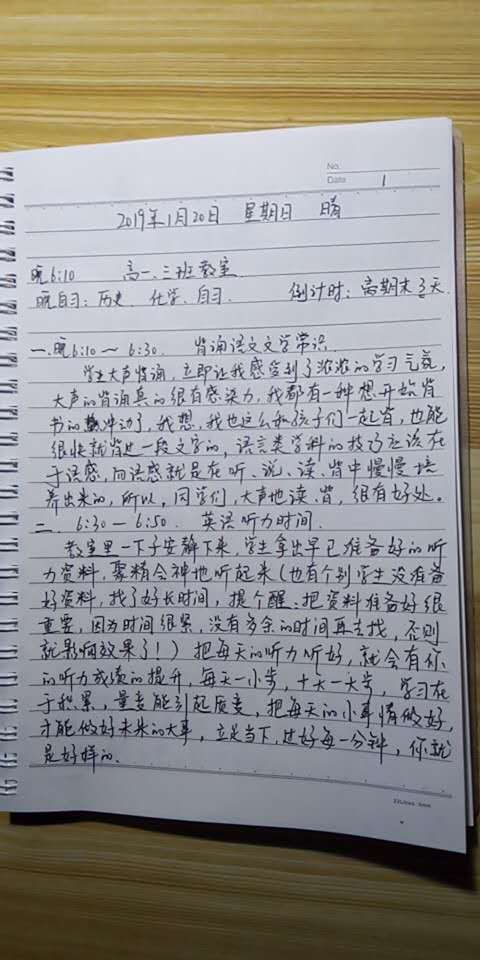 No.
Date 1
2019年1月20日 星期日 晴
晚6:10 高一.三班教室
晚自习: 历史 化学 自习. 倒计时: 离期末3天
一.晚6:10～6:30. 背诵语文文学常识
学生大声背诵,立即让我感受到了浓浓的学习气氛,
大声的背诵真的很有感染力,我都有一种想开始背
书的冲动了,我想,我也这么和孩子们一起背,也能
很快就背进一段文字的,语言类学科的技巧应该在
于语感,而语感就是在听、说、读、背中慢慢培
养出来的,所以,同学们,大声地读、背,很有好处。
二. 6:30—6:50. 英语听力时间.
教室里一下子安静下来,学生拿出早已准备好的听
力资料,聚精会神地听起来(也有个别学生没准备
好资料,找了好长时间,提个醒:把资料准备好很
重要,因为时间很紧,没有多余的时间再去找,否则
就影响效果了!)把每天的听力听好,就会有你
的听力成绩的提升,每天一小步,十天一大步,学习在
于积累,量变能引起质变,把每天的小事情做好,
才能做好未来的大事,立足当下,过好每一分钟,你就
是好样的.